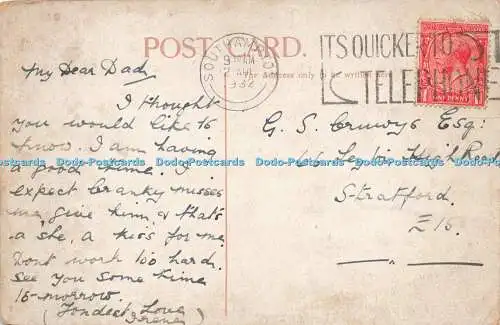 POST CARD.
The Address only to be written here
SOUTHAMPTO
9 AM
2
1932
ITS QUICKER TO
TELEPHONE
ONE PENNY
My Dear Dad,
I thought
you would like to
know. I am having
a good time. I
expect Cranky misses
me, give him & that's
a she, a kiss for me
Dont work too hard.
see you some time
to-morrow.
(Fondest Love
Irene)
G. S. Cruwys Esq:
Road
Stratford.
E15.
Dodo-Postcards Dodo-Postcards Dodo-Postcards Dodo-Postcards Dodo-Postcards Dodo-Postcards